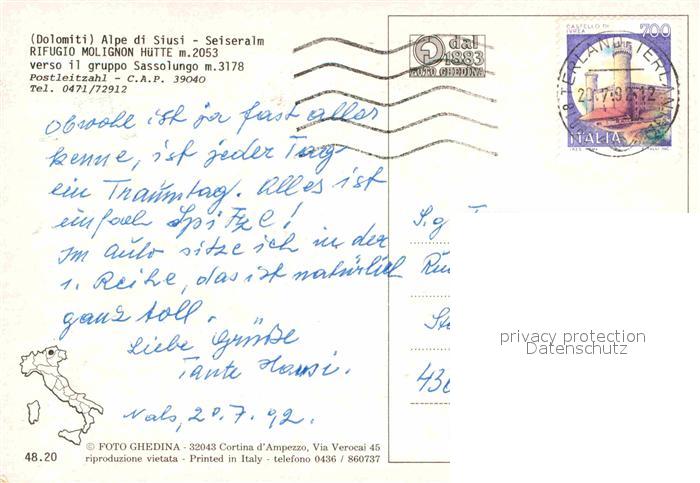 (Dolomiti) Alpe di Siusi - Seiseralm
RIFUGIO MOLIGNON HüTTE m.2053
verso il gruppo Sassolungo m.3178
Postleitzahl - C.A.P. 39040
Tel. 0471/72912
dal
1883
FOTO GHEDINA
CASTELLO DI
IVREA
700
ITALIA
TERLANO TERLAN
obwohl ist ja fast alles
kenne, ist jeder Tag
ein Traumtag. Alles ist
einfach Spitze!
Im Auto sitze ich in der
1. Reihe, das ist natürlich
ganz toll.
Liebe Grüße
Tante Hansi.
Nals, 20.7.92.
S.g.
privacy protection
Datenschutz
© FOTO GHEDINA - 32043 Cortina d'Ampezzo, Via Verocai 45
riproduzione vietata - Printed in Italy - telefono 0436 / 860737
48.20